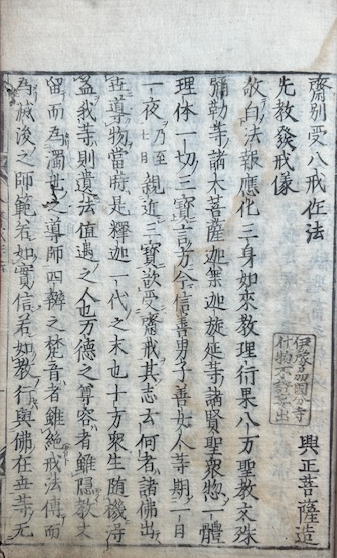 齋別受八戒作法　興正菩薩造
先教發戒儀
敬白法報應化三身如來教理行果八万聖教文殊
彌勒等諸大菩薩迦葉迦旃延等諸賢聖衆惣一體
理体一切三寳言方今信善男子善女人等期一日
一夜乃至七日親近三寳欲受齋戒其志云何者諸佛出
世導物當時是釋迦一代之末也十方衆生随機得
益我等則遺法値遇之人也万德之尊容者雖隱教文
留而為濁世之導師四辨之梵音者雖絶戒法傳而
為滅後之師範若如實信若如教行與佛在世等无